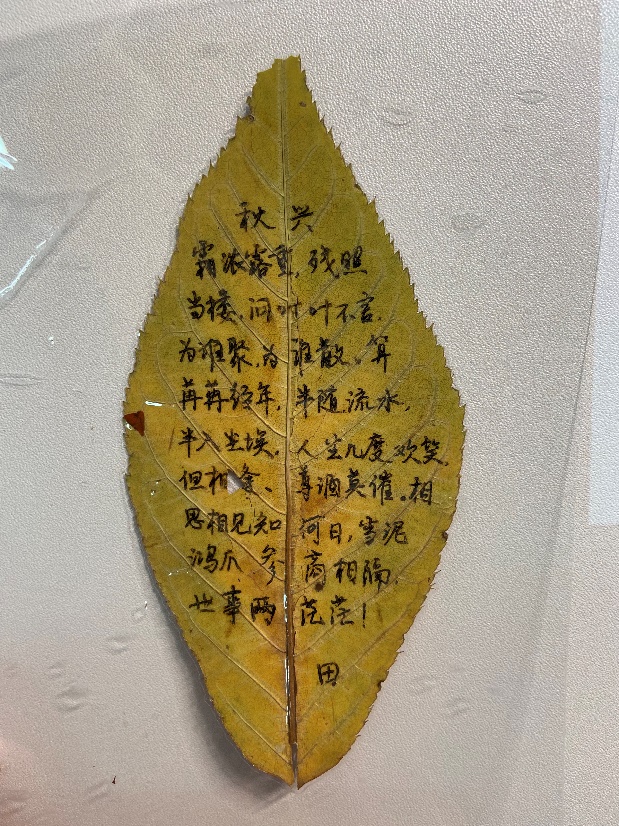 秋兴
霜浓露重,残照
当楼,问叶叶不言.
为谁聚,为谁散。算
苒苒经年,半随流水,
半入尘埃.人生几度欢笑.
但相逢、尊酒莫催。相
思相见知何日,雪泥
鸿爪 参商相隔.
世事两茫茫!
田